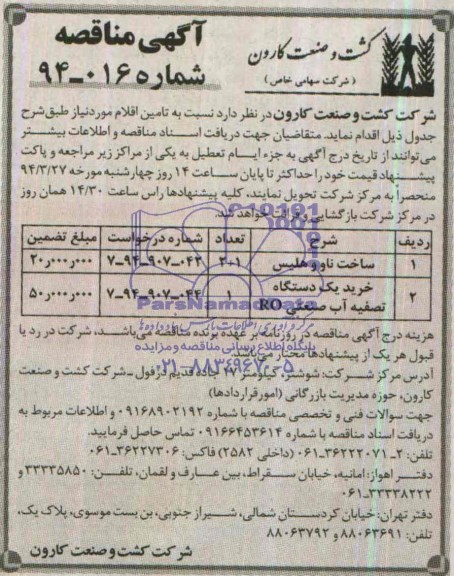 کشت و صنعت کارون
( شرکت سهامی خاص )
آگهی مناقصه
شماره ۰۱۶-۹۴
شرکت کشت و صنعت کارون در نظر دارد نسبت به تامین اقلام موردنیاز طبق شرح
جدول ذیل اقدام نماید. متقاضیان جهت دریافت اسناد مناقصه و اطلاعات بیشتر
می‌توانند از تاریخ درج آگهی به جزء ایام تعطیل به یکی از مراکز زیر مراجعه و پاکت
پیشنهاد قیمت خود را حداکثر تا پایان ساعت ۱۴ روز چهارشنبه مورخه ۹۴/۳/۲۷
منحصراً به مرکز شرکت تحویل نمایند، کلیه پیشنهادها راس ساعت ۱۴/۳۰ همان روز
در مرکز شرکت بازگشایی و قرائت خواهد شد.
ردیف شرح تعداد شماره درخواست مبلغ تضمین
۱ ساخت ناو و هلیس ۲+۱ ۷-۹۴-۹۰۷-۰۴۳ ۲۰,۰۰۰,۰۰۰
۲ خرید یک دستگاه تصفیه آب صنعتی RO ۱ ۷-۹۴-۹۰۷-۰۴۴ ۵۰,۰۰۰,۰۰۰
ParsNamadData
پایگاه اطلاع رسانی مناقصه و مزایده
۰۲۱-۸۸۳۴۹۶۷۰-۵
هزینه درج آگهی مناقصه در روزنامه بر عهده برنده مناقصه می‌باشد، شرکت در رد یا
قبول هر یک از پیشنهادها مختار می‌باشد.
آدرس مرکز شرکت: شوشتر، کیلومتر ۲۷ جاده قدیم دزفول - شرکت کشت و صنعت
کارون، حوزه مدیریت بازرگانی (امور قراردادها)
جهت سوالات فنی و تخصصی مناقصه با شماره ۰۹۱۶۸۹۰۲۱۹۲ و اطلاعات مربوط به
دریافت اسناد مناقصه با شماره ۰۹۱۶۶۴۵۳۶۱۴ تماس حاصل فرمایید.
تلفن: ۲-۳۶۲۲۲۰۷۱-۰۶۱ (داخلی ۲۵۸۲) فاکس: ۳۶۲۲۷۳۰۶-۰۶۱
دفتر اهواز: امانیه، خیابان سقراط، بین عارف و لقمان، تلفن: ۳۳۳۳۵۸۵۰ و
۳۳۳۳۸۲۲۲-۰۶۱
دفتر تهران: خیابان کردستان شمالی، شیراز جنوبی، بن بست موسوی، پلاک یک،
تلفن: ۸۸۰۶۳۶۹۱ و ۸۸۰۶۳۷۹۲
شرکت کشت و صنعت کارون